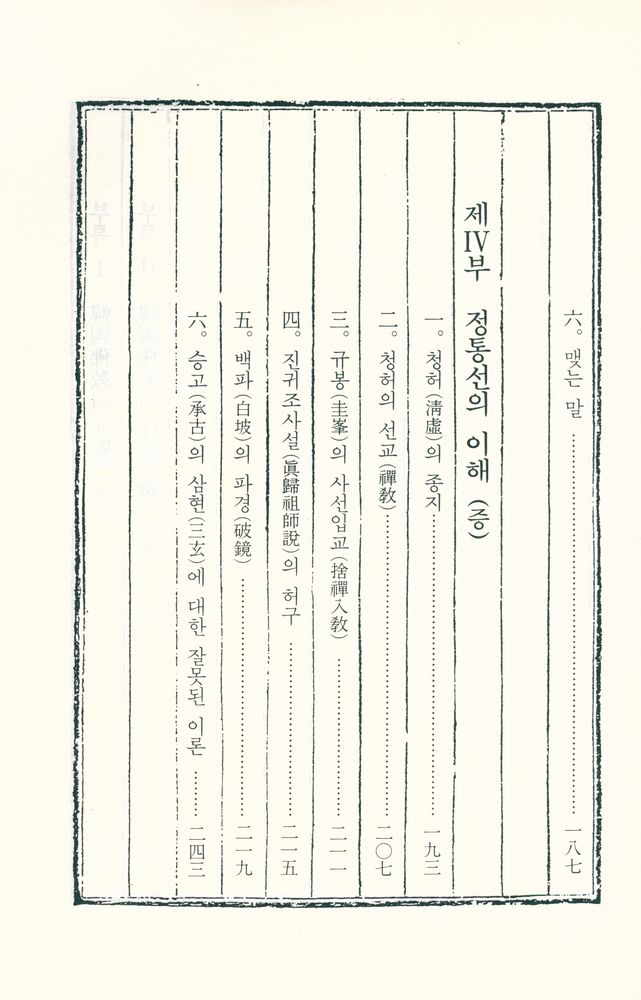 六。 맺는 말 …… 一八七
제Ⅳ부 정통선의 이해 (증)
一。 청허(淸虛)의 종지 …… 一九三
二。 청허의 선교(禪敎) …… 二〇七
三。 규봉(圭峯)의 사선입교(捨禪入敎) …… 二一一
四。 진귀조사설(眞歸祖師說)의 허구 …… 二一五
五。 백파(白坡)의 파경(破鏡) …… 二一九
六。 승고(承古)의 삼현(三玄)에 대한 잘못된 이론 …… 二四三